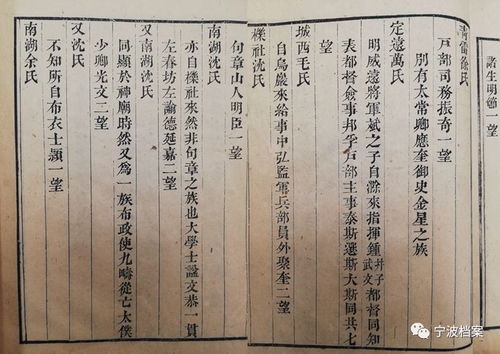 諸生明德一望
青雷徐氏
戶部司務振奇一望
別有太常卿應奎御史金星之族
定遠萬氏
明威遠將軍斌之子自滁來指揮鍾武文井子都督同知
表都督僉事邦孚戶部主事泰斯選斯大斯同共七
望
城西毛氏
自烏巖來給事中弘監軍兵部員外聚奎二望
櫟社沈氏
句章山人明臣一望
南湖沈氏
亦自櫟社來然非句章之族也大學士謚文恭一貫
左春坊左諭德延嘉二望
又南湖沈氏
同顯於神廟時然又為一族布政使九疇從亡太僕
少卿光文二望
又沈氏
不知所自布衣士穎一望
南湖余氏
宁波档案